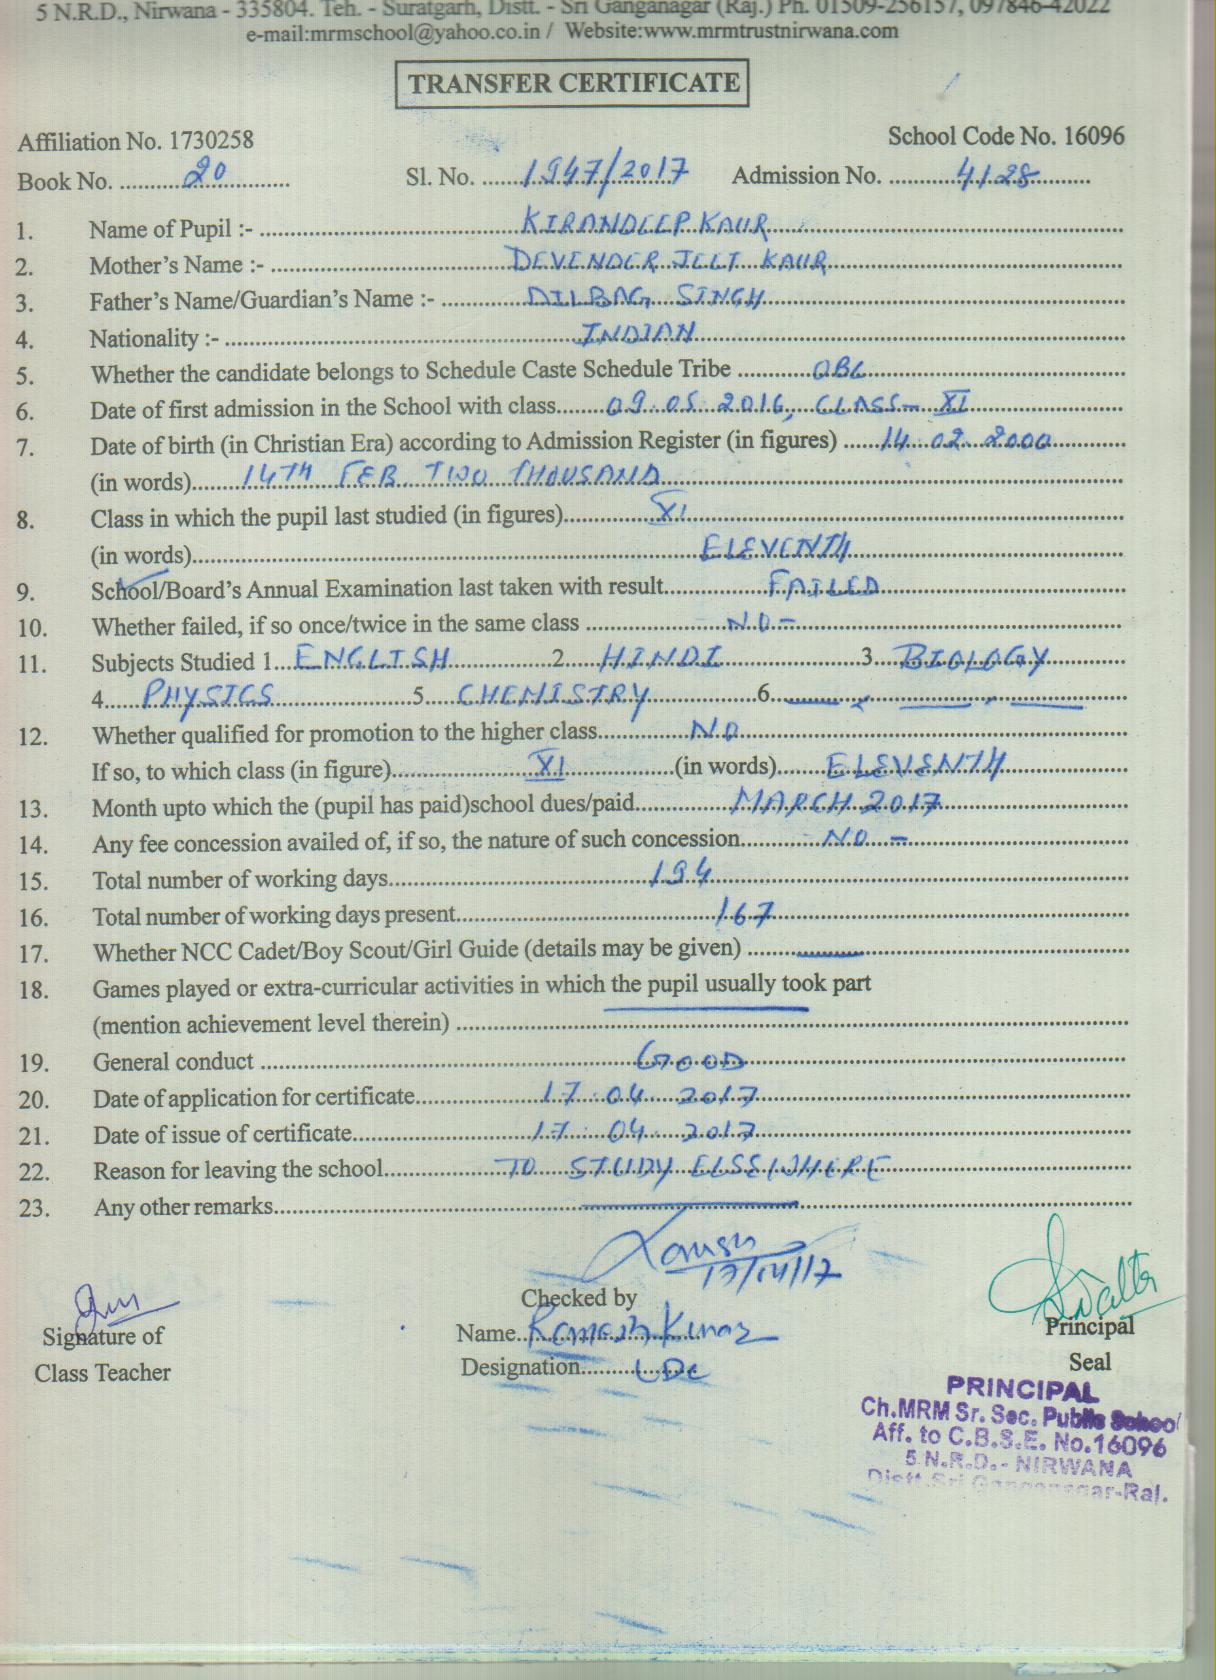 5 N.R.D., Nirwana - 335804. Teh. - Suratgarh, Distt. - Sri Ganganagar (Raj.) Ph. 01509-256157, 097846-42022
e-mail:mrmschool@yahoo.co.in / Website:www.mrmtrustnirwana.com
TRANSFER CERTIFICATE
Affiliation No. 1730258 School Code No. 16096
Book No. 20 Sl. No. 1947/2017 Admission No. 4128
1. Name of Pupil :- KIRANDEEP KAUR
2. Mother's Name :- DEVENDER JEET KAUR
3. Father's Name/Guardian's Name :- DILBAG SINGH
4. Nationality :- INDIAN
5. Whether the candidate belongs to Schedule Caste Schedule Tribe OBC
6. Date of first admission in the School with class 09.05.2016, CLASS- XI
7. Date of birth (in Christian Era) according to Admission Register (in figures) 14.02.2000
(in words) 14TH FEB. TWO THOUSAND
8. Class in which the pupil last studied (in figures) XI
(in words) ELEVENTH
9. School/Board's Annual Examination last taken with result FAILED
10. Whether failed, if so once/twice in the same class NO-
11. Subjects Studied 1 ENGLISH 2 HINDI 3 BIOLOGY
4 PHYSICS 5 CHEMISTRY 6
12. Whether qualified for promotion to the higher class NO
If so, to which class (in figure) XI (in words) ELEVENTH
13. Month upto which the (pupil has paid)school dues/paid MARCH 2017
14. Any fee concession availed of, if so, the nature of such concession NO -
15. Total number of working days 194
16. Total number of working days present 167
17. Whether NCC Cadet/Boy Scout/Girl Guide (details may be given)
18. Games played or extra-curricular activities in which the pupil usually took part
(mention achievement level therein)
19. General conduct GOOD
20. Date of application for certificate 17.04.2017
21. Date of issue of certificate 17.04.2017
22. Reason for leaving the school TO STUDY ELSEWHERE
23. Any other remarks
17/04/17
Checked by
Signature of Name Ramesh Kumar Principal
Class Teacher Designation LDC Seal
PRINCIPAL
Ch.MRM Sr. Sec. Public School
Aff. to C.B.S.E. No.16096
5 N.R.D.- NIRWANA
Distt.Sri Ganganagar-Raj.